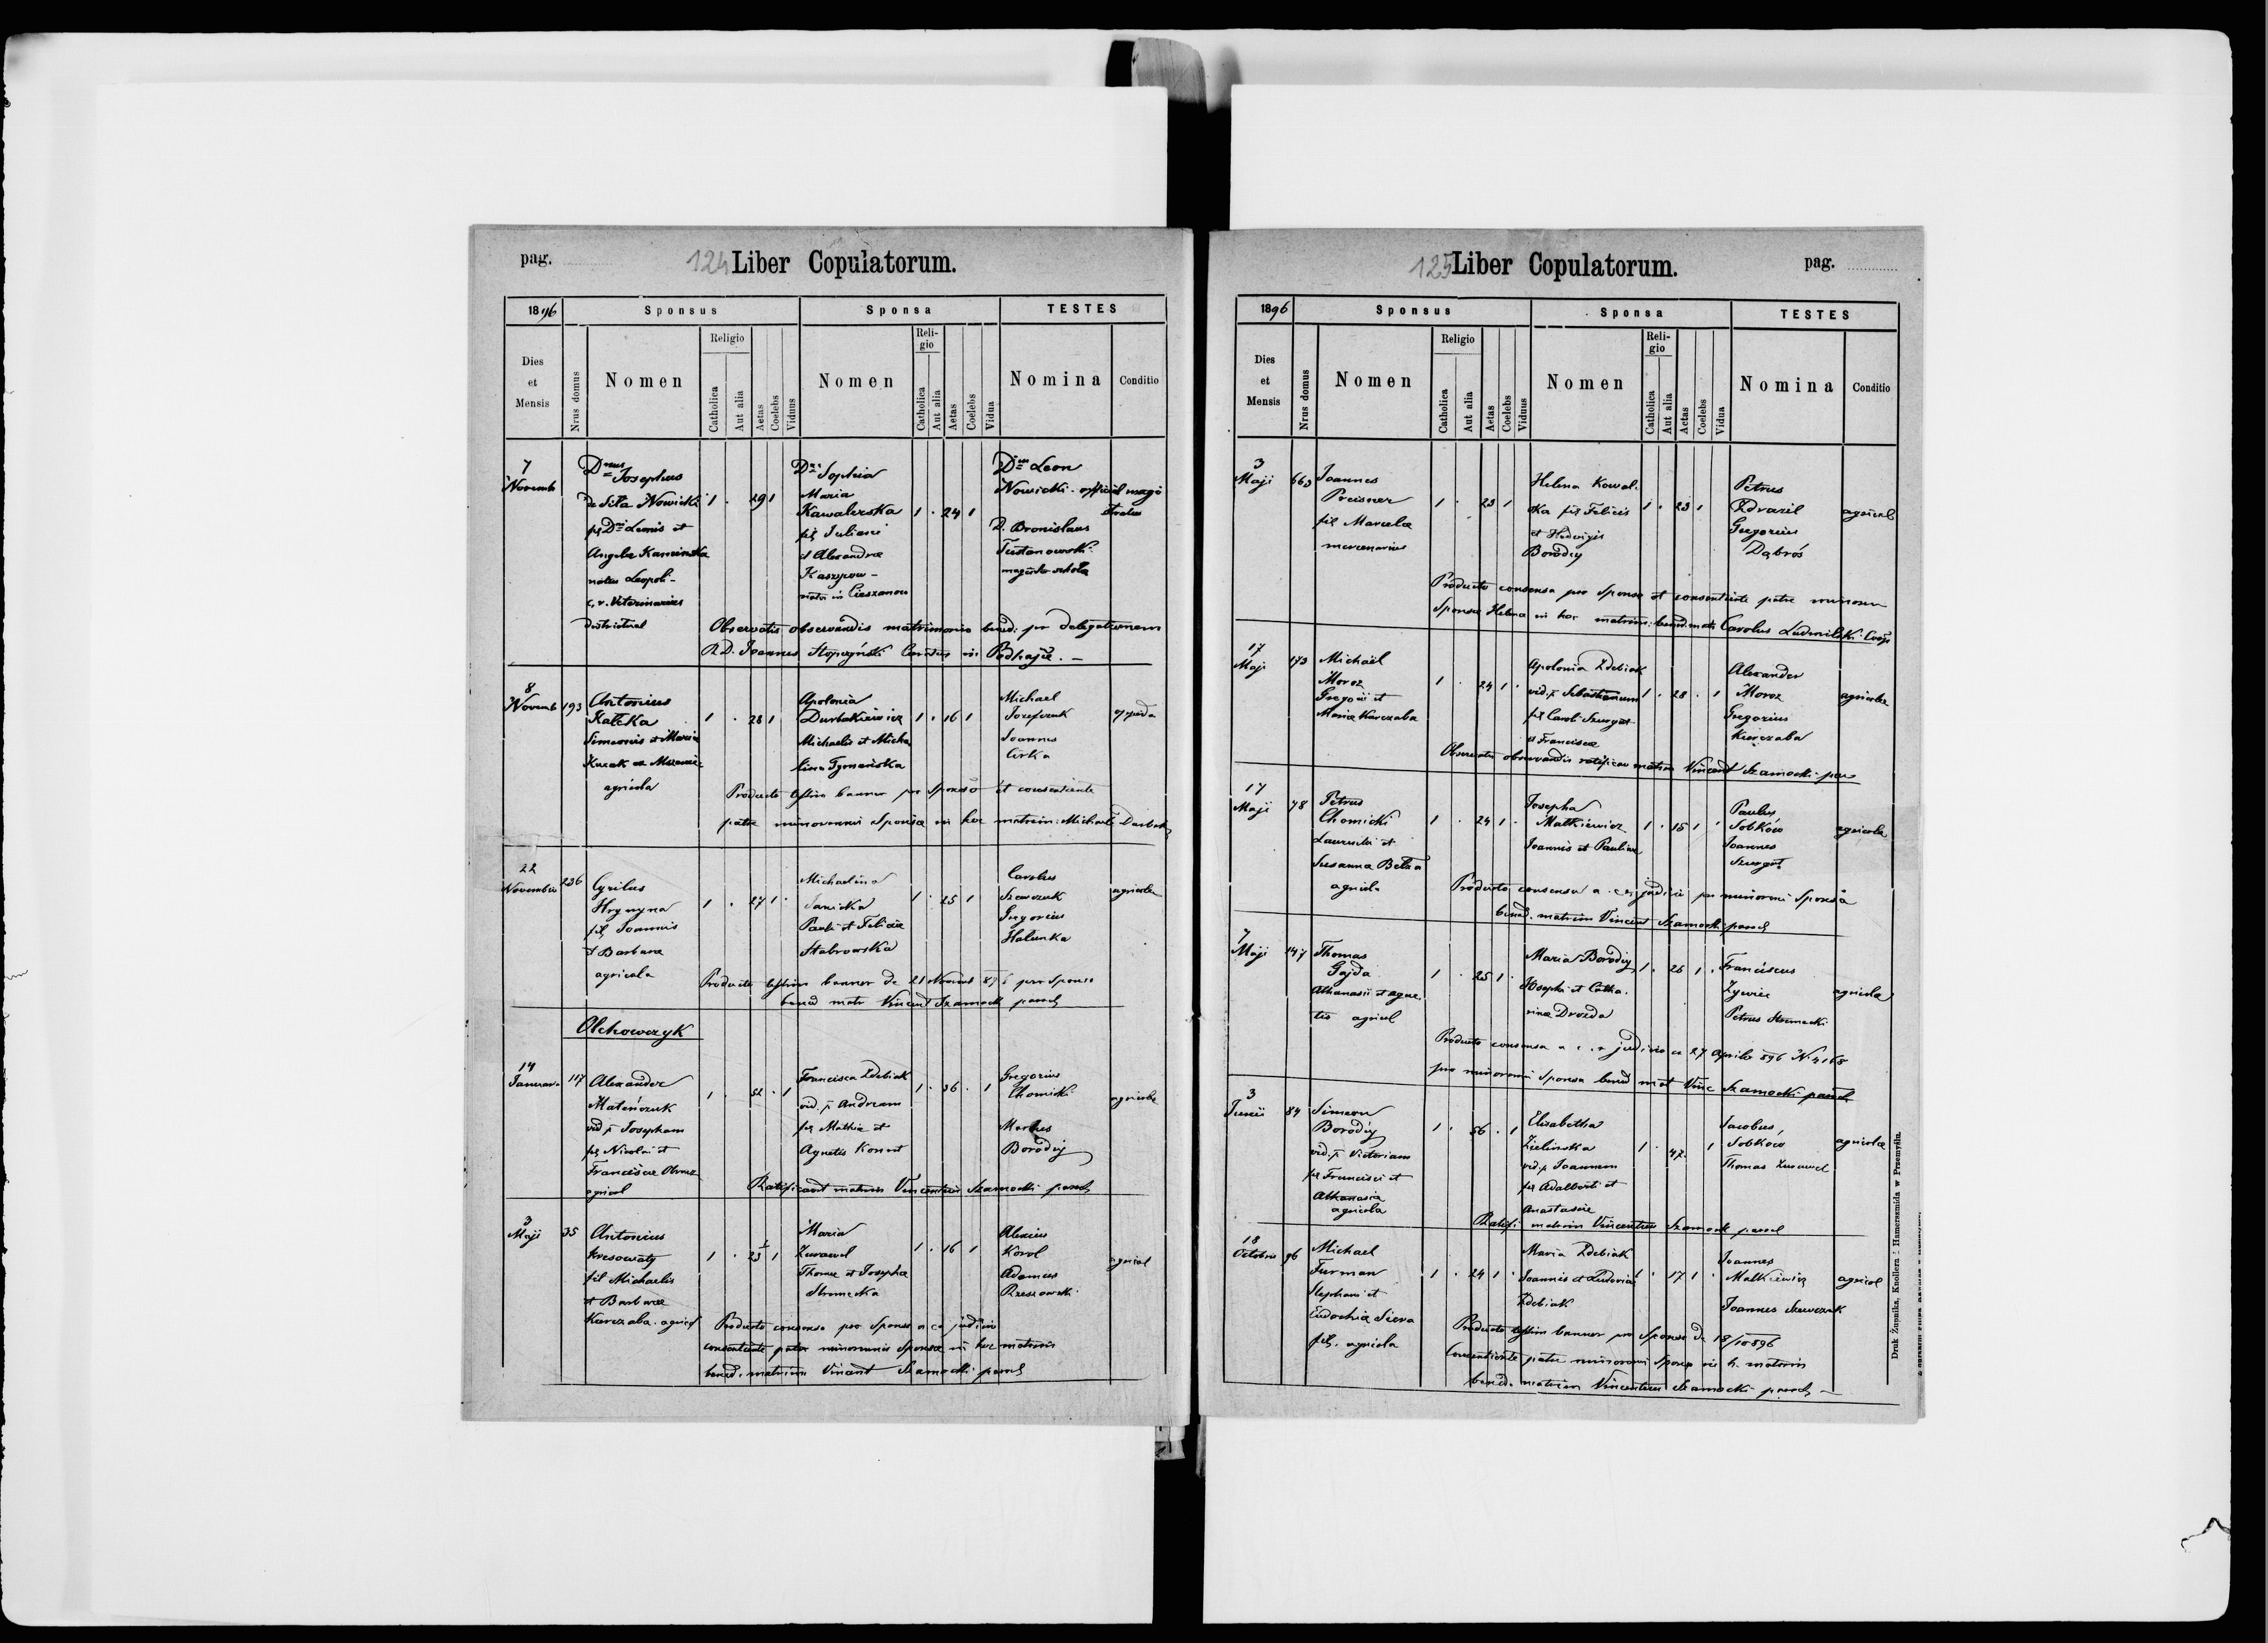 pag.
124 Liber Copulatorum.
1896
Sponsus
Sponsa
TESTES
Dies et Mensis
Nrus domus
Nomen
Religio
Catholica
Aut alia
Aetas
Coelebs
Viduus
Nomen
Reli-gio
Catholica
Aut alia
Aetas
Coelebs
Vidua
Nomina
Conditio
7 Novemb
Dnus Josephus
de Siła Nowicki
1 . 29 1
Angela Kaminska
natus Leopoli
c. r. Veterinarius
districtual
Sophia
Maria
Kawalerska
1 . 24 1
fil Juliani
et Alexandra
in Cieszanow
Leon
Nowicki official magi
stratus
D. Bronislaus
magister schola
Observatis observandis matrimonio bened: per delegationem
R.D. Joannes Stopczyński in Podhajce. —
8 Novemb
193
Antonius
Kałka
Simeonis et Maria
agricola
1 . 28 1
Apolonia
Durbakiewicz
Michaelis et Micha
lina Tymańska
1 . 16 1
Michael
Jozefczuk
Joannes
Cirka
Producto testim bannor pro Sponso et consentiente
patre minorenni Sponsa in hoc matrim: Michaele
22 Novembris
236
Cyrilus
Hrynyna
fil Joannis
et Barbara
agricola
1 . 27 1
Michaelina
Janicka
Pauli et Felicia
Stabrowska
1 . 25 1
Carolus
Szewczuk
Gregorius
Hałunka
agricola
Producto testim bannor de 21 pro Sponso
bened matr Vincent Szamocki paroch
Olchowczyk
14 Januar
117
Alexander
Mateńczuk
vid p Josepham
fil Nicolai et
Francisca
agricol
1 . 52 . 1
Francisca Zdebiak
vid. p Andream
fil Mathia et
Agnetis
1 . 36 . 1
Gregorius
Chomicki
Markus
Borodij
agricola
Ratificavit matrim Vincentius Szamocki paroch
3 Maji
35
Antonius
Kresowaty
fil Michaelis
et Barbara
Karczaba. agricol
1 . 23 1
Maria
Zurawel
Thoma et Josepha
Stromecka
1 . 16 1
Alexius
Korol
Adamus
Rzeszowski
agricol
Producto consensu pro Sponso a judicio
consentiente patre minorennis Sponsa in hoc matrim
bened. matrim Vincent Szamocki paroch
125 Liber Copulatorum.
pag.
1896
Sponsus
Sponsa
TESTES
Dies et Mensis
Nrus domus
Nomen
Religio
Catholica
Aut alia
Aetas
Coelebs
Viduus
Nomen
Reli-gio
Catholica
Aut alia
Aetas
Coelebs
Vidua
Nomina
Conditio
3 Maji
663
Joannes
Preisner
fil Marcela
mercenarius
1 . 23 1
Helena Kowal
ska fil Felicis
et Hedwigis
Borodij
1 . 23 1
Petrus
Zdrazil
Gregorius
Dąbroś
agricol
Producto consensu pro Sponso et consentiente patre minoren
Sponsa Helena in hoc matrim: bened. matr Carolus Ludmilski Coop
17 Maji
173
Michaël
Moroz
Gregorii et
Maria Karczaba
1 . 24 1
Apolonia Zdebiak
vid. p Sebastianum
fil Caroli Szurgot
et Francisca
1 . 28 . 1
Alexander
Moroz
Gregorius
Karczaba
agricola
Observatis observandis ratificav matrim Vincent Szamocki par
17 Maji
78
Petrus
Chomicki
Susanna
agricola
1 . 24 1
Josepha
Malkiewicz
Joannis et Paulina
1 . 15 1
Paulus
Sobków
Joannes
Szurgot
agricola
Producto consensu a c. r. judicii pro minorenni Sponsa
bened. matrim Vincent Szamocki paroch
7 Maji
147
Thomas
Gajda
Athanasii et Agne
tis agricol
1 . 25 1
Maria Borodij
Josephi et Catha
rina Drozda
1 . 26 1
Franciscus
Zywicz
Petrus Stromecki
agricola
Producto consensu a c. r. judicio 27 Aprilis 896 N. 4168
pro minorenni Sponsa bened mat Vinc Szamocki paroch
3 Junii
84
Simeon
Borodij
vid. p Victoriam
fil Francisci et
Athanasia
agricola
1 . 56 . 1
Elisabetha
Zielinska
vid. p Joannem
fil Adalberti et
Anastasia
1 . 47 . 1
Jacobus
Sobków
Thomas Zurawel
agricola
Ratifi matrim Vincentius Szamocki paroch
18 Octobris
96
Michael
Furman
Stephani et
Eudochia Siera
fil. agricola
1 . 24 1
Maria Zdebiak
Joannis et Ludovica
Zdebiak
1 . 17 1
Joannes
Malkiewicz
Joannes Szewczuk
agricol
Producto testim bannor pro Sponso de 18/10 896
Consentiente patre minorenni Sponsa in h. matrim
bened. matrim Vincentius Szamocki paroch —
Druk Żupnika, Knollera i Hamerszmida w Przemyślu.